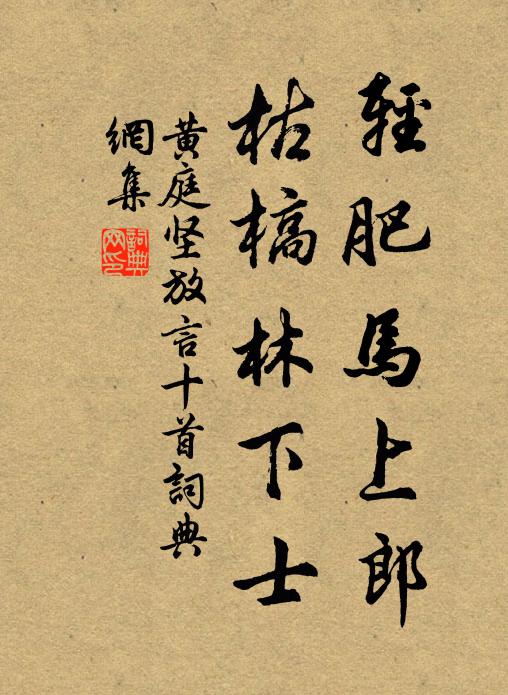 輕肥馬上郎
枯槁林下士
黃庭坚放言十首詞典
網集
詞典
网印